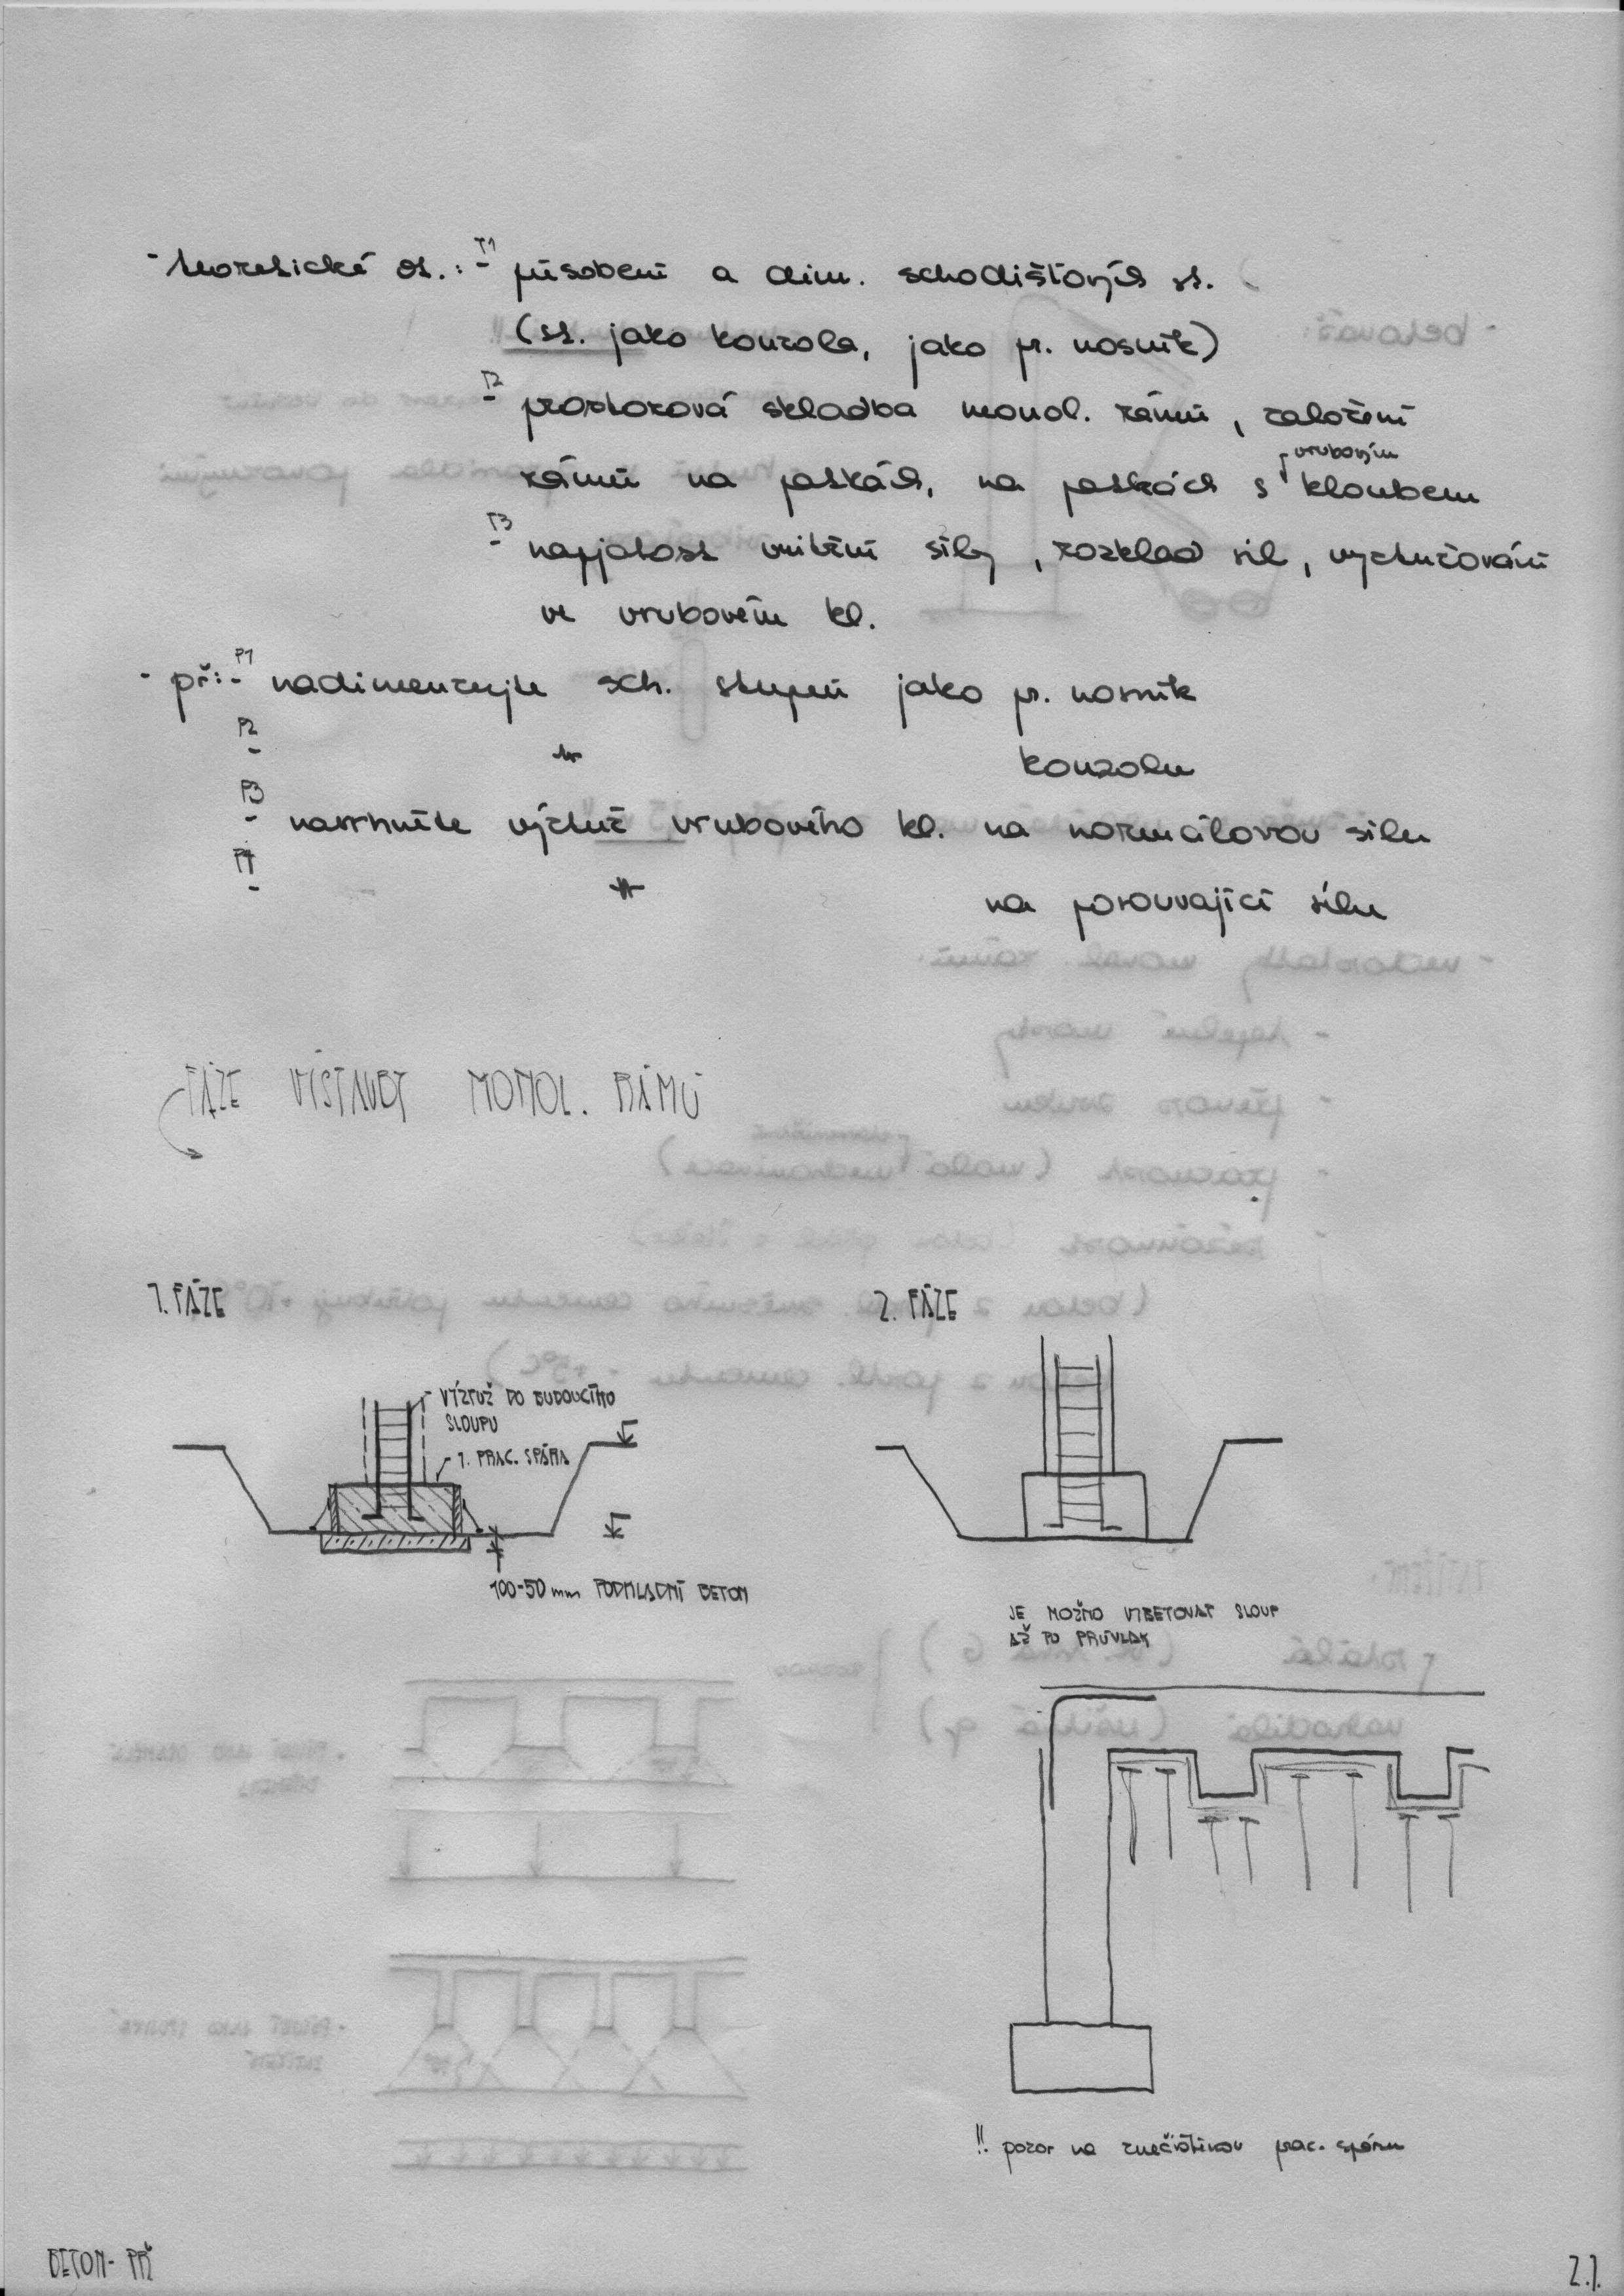 - teoretické ot.: T1 - působení a dim. schodišťových st.
(st. jako konzola, jako pr. nosník)
T2 - prostorová skladba monol. rámů, založení
rámů na patkách, na patkách s vrubovým kloubem
T3 - napjatost vnitřní síly, rozklad sil, vyztužování
ve vrubovém kl.
- př: P1 - nadimenzujte sch. stupeň jako pr. nosník
P2 - -"- konzolu
P3 - navrhněte výztuž vrubového kl. na normálovou sílu
P4 - -"- na posouvající sílu
FÁZE VÝSTAVBY MONOL. RÁMŮ
1. FÁZE
2. FÁZE
- VÝZTUŽ DO BUDOUCÍHO
SLOUPU
1. PRAC. SPÁRA
100-50 mm PODKLADNÍ BETON
JE MOŽNO VYBETOVAT SLOUP
AŽ PO PRŮVLAK
!! pozor na znečištěnou prac. spáru
BETON - PŘ
2.1.